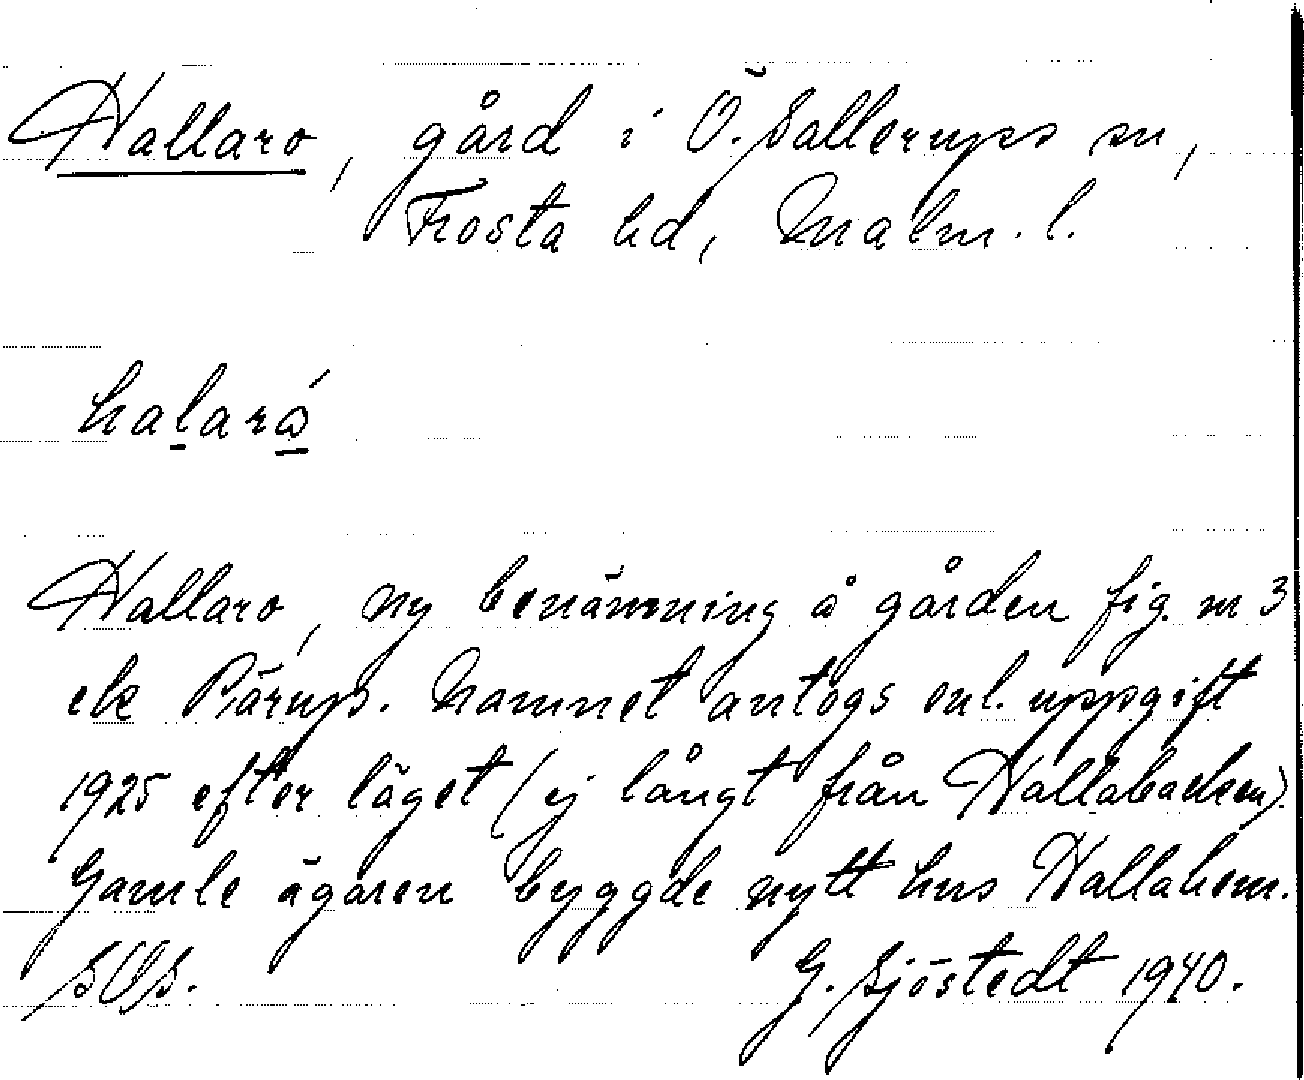 Hallaro, gård i Ö. Sallerups sn,
Frosta hd, Malm. l.
halarå
Hallaro, ny benämning å gården fig. nr 3
etc Pärups. Namnet antogs enl. uppgift
1925 efter läget (ej långt från Hallabacken).
Gamle ägaren byggde nytt hus Hallahem.
SOS. G. Sjöstedt 1940.